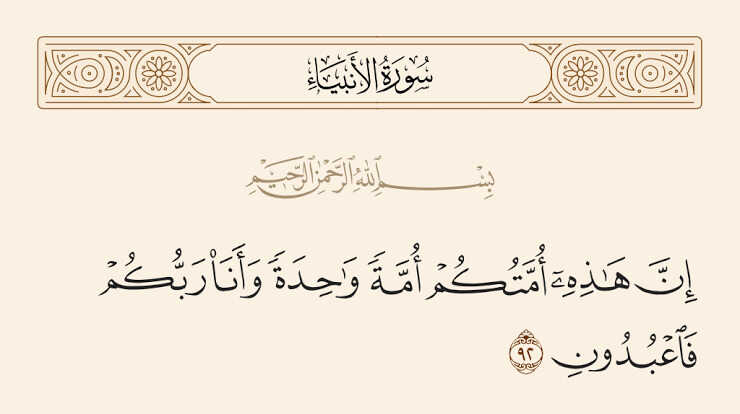 سُورَةُ الأَنبِيَاءِ
بِسْمِ ٱللَّهِ ٱلرَّحْمَٰنِ ٱلرَّحِيمِ
إِنَّ هَٰذِهِۦٓ أُمَّتُكُمْ أُمَّةً وَٰحِدَةً وَأَنَا۠ رَبُّكُمْ
فَٱعْبُدُونِ ٩٢